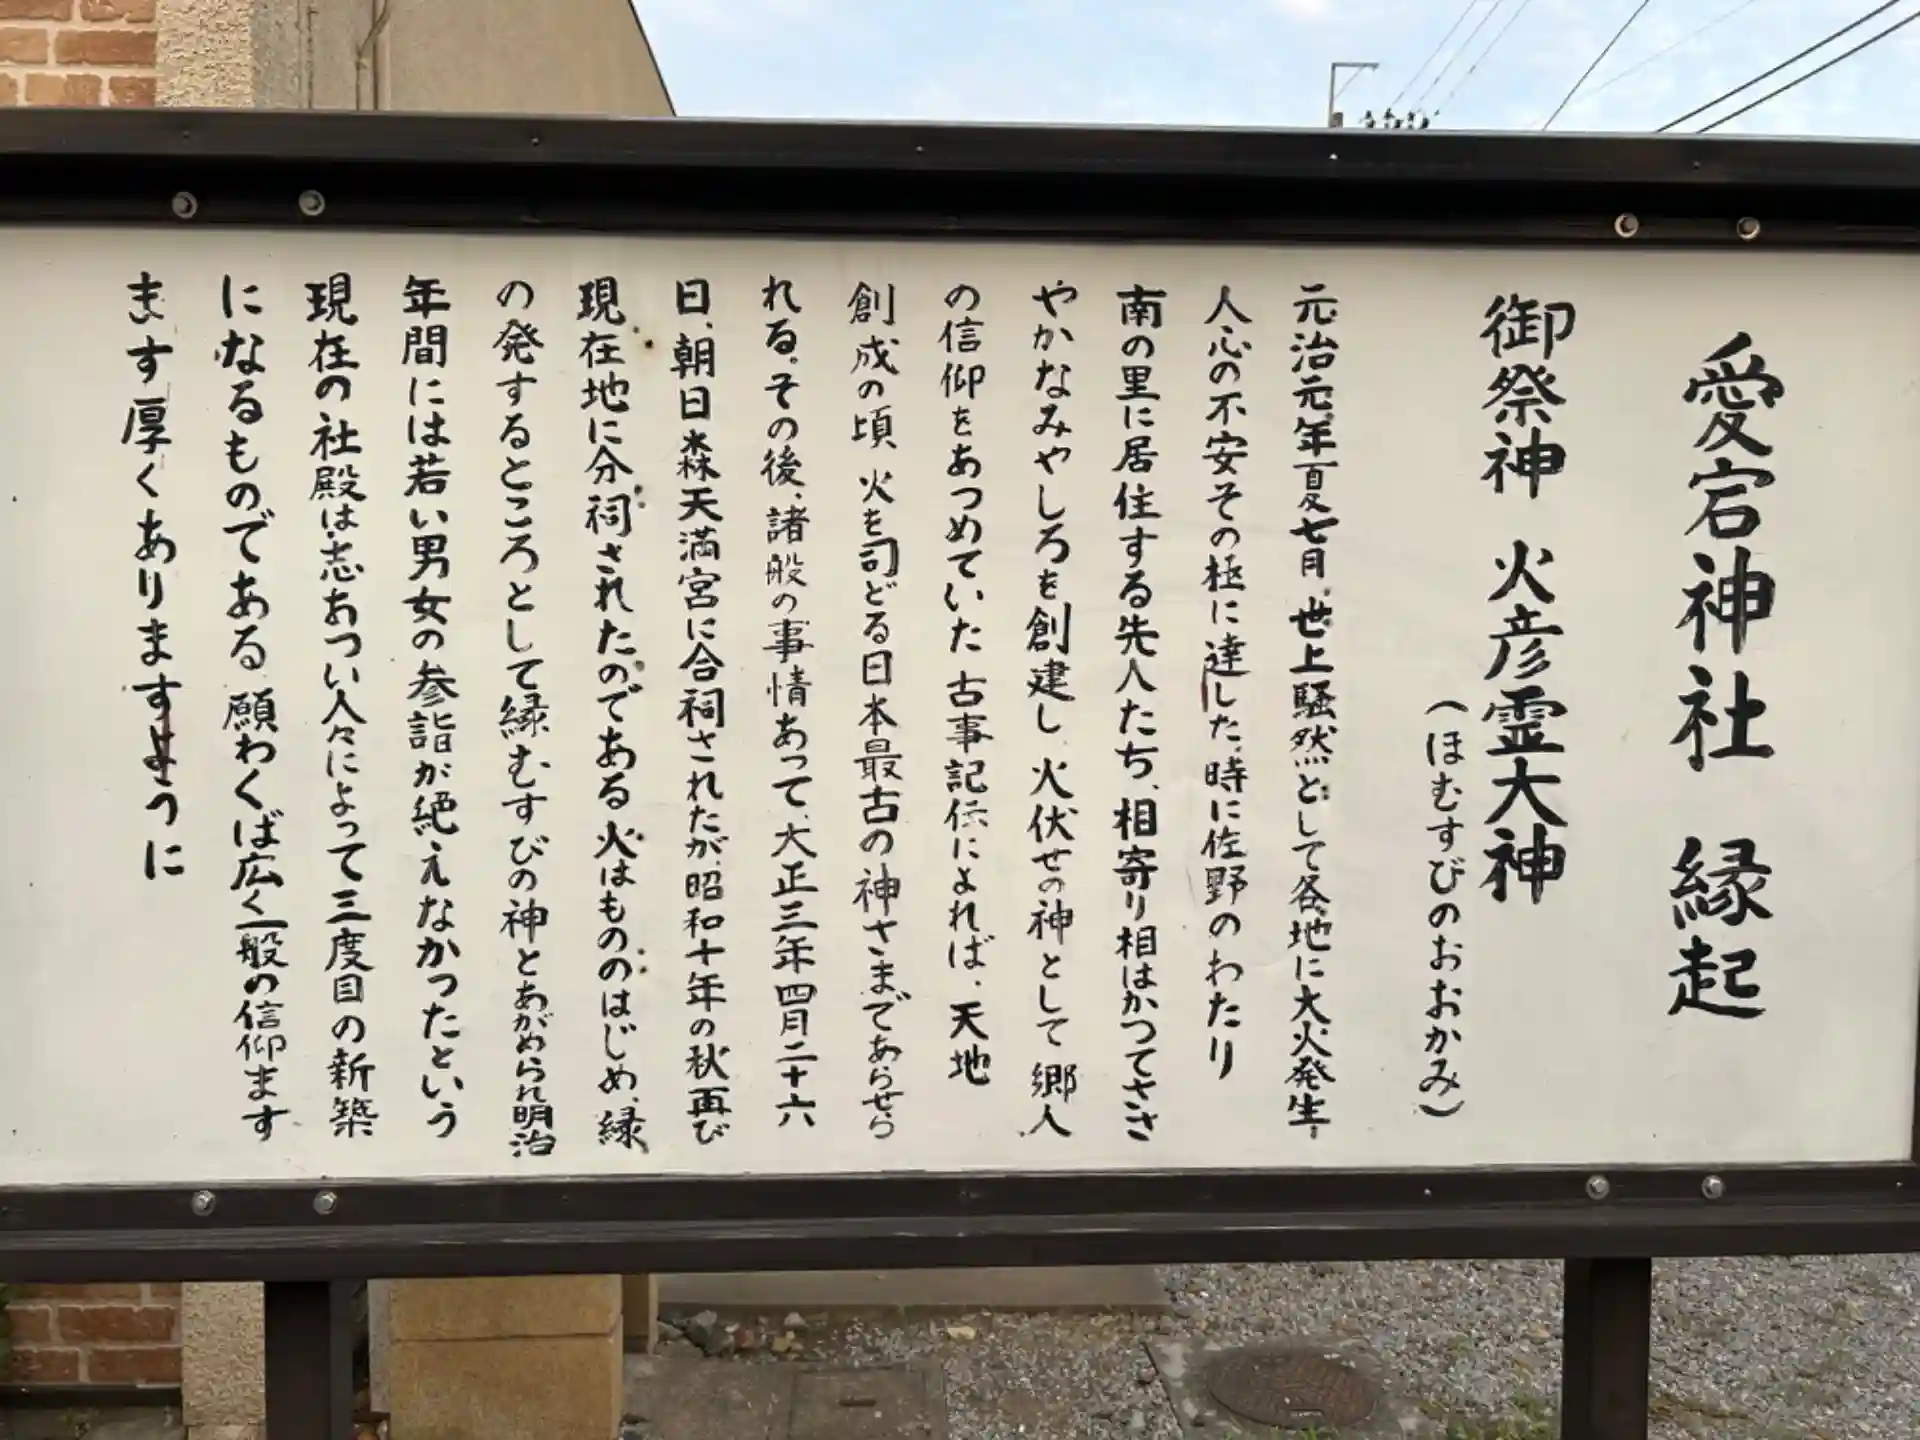 愛宕神社 縁起
御祭神 火彦霊大神
（ほむすびのおおかみ）
元治元年夏七月。世上騒然として各地に大火発生、
人心の不安その極に達した、時に佐野のわたり
南の里に居住する先人たち、相寄り相はかつてささ
やかなみやしろを創建し、火伏せの神として郷人
の信仰をあつめていた 古事記伝によれば、天地
創成の頃 火を司どる日本最古の神さまであらせら
れる。その後、諸般の事情あって、大正三年四月二十六
日、朝日森天満宮に合祠されたが、昭和十年の秋再び
現在地に分祠されたのである 火はもののはじめ、縁
の発するところとして縁むすびの神とあがめられ明治
年間には若い男女の参詣が絶えなかつたという
現在の社殿は志あつい人々によって三度目の新築
になるものである 願わくば広く一般の信仰ます
ます厚くありますように